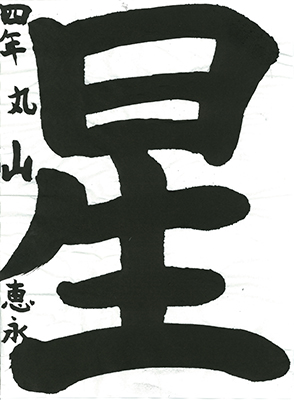 星
四年 丸山 恵永